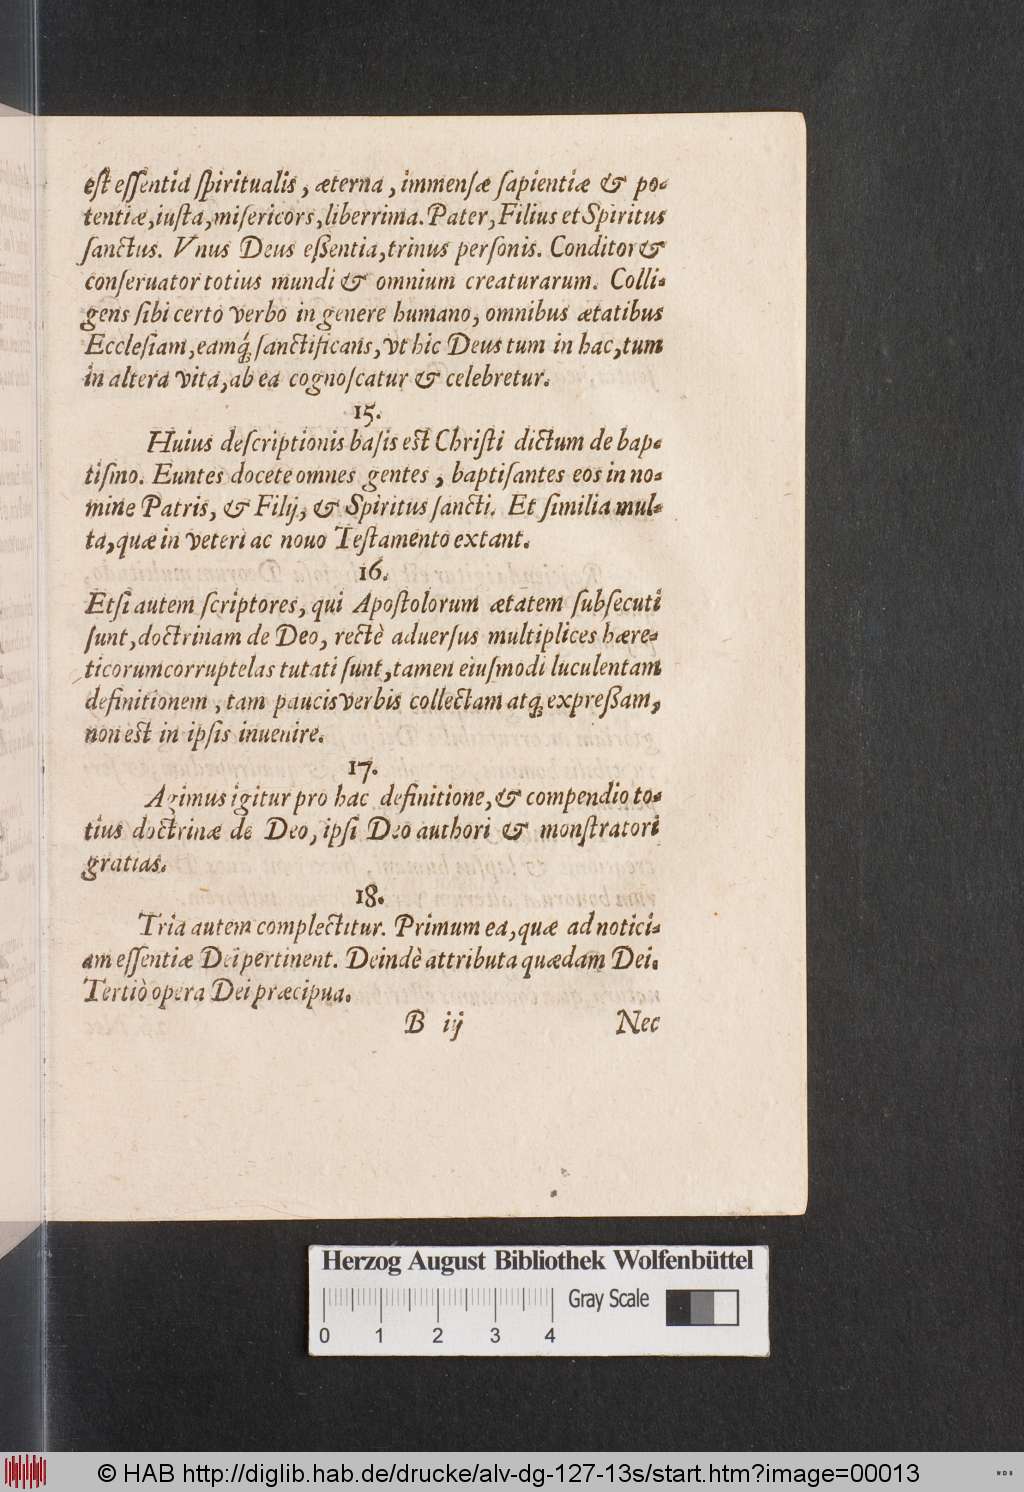 est essentia spiritualis, æterna, immensæ sapientiæ & po-
tentiæ, iusta, misericors, liberrima. Pater, Filius et Spiritus
sanctus. Vnus Deus eßentia, trinus personis. Conditor &
conseruator totius mundi & omnium creaturarum. Colli-
gens sibi certo verbo in genere humano, omnibus ætatibus
Ecclesiam, eamq́; sanctificans, vt hic Deus tum in hac, tum
in altera vita, ab ea cognoscatur & celebretur.
15.
Huius descriptionis basis est Christi dictum de bap-
tismo. Euntes docete omnes gentes, baptisantes eos in no-
mine Patris, & Filij, & Spiritus sancti. Et similia mul-
ta, quæ in veteri ac nouo Testamento extant.
16.
Etsi autem scriptores, qui Apostolorum ætatem subsecuti
sunt, doctrinam de Deo, rectè aduersus multiplices hære-
ticorum corruptelas tutati sunt, tamen eiusmodi luculentam
definitionem, tam paucis verbis collectam atq; expreßam,
non est in ipsis inuenire.
17.
Agimus igitur pro hac definitione, & compendio to-
tius doctrinæ de Deo, ipsi Deo authori & monstratori
gratias.
18.
Tria autem complectitur. Primum ea, quæ ad notici-
am essentiæ Dei pertinent. Deindè attributa quædam Dei.
Tertiò opera Dei præcipua.
B ij Nec
Herzog August Bibliothek Wolfenbüttel
Gray Scale
0 1 2 3 4
© HAB http://diglib.hab.de/drucke/alv-dg-127-13s/start.htm?image=00013